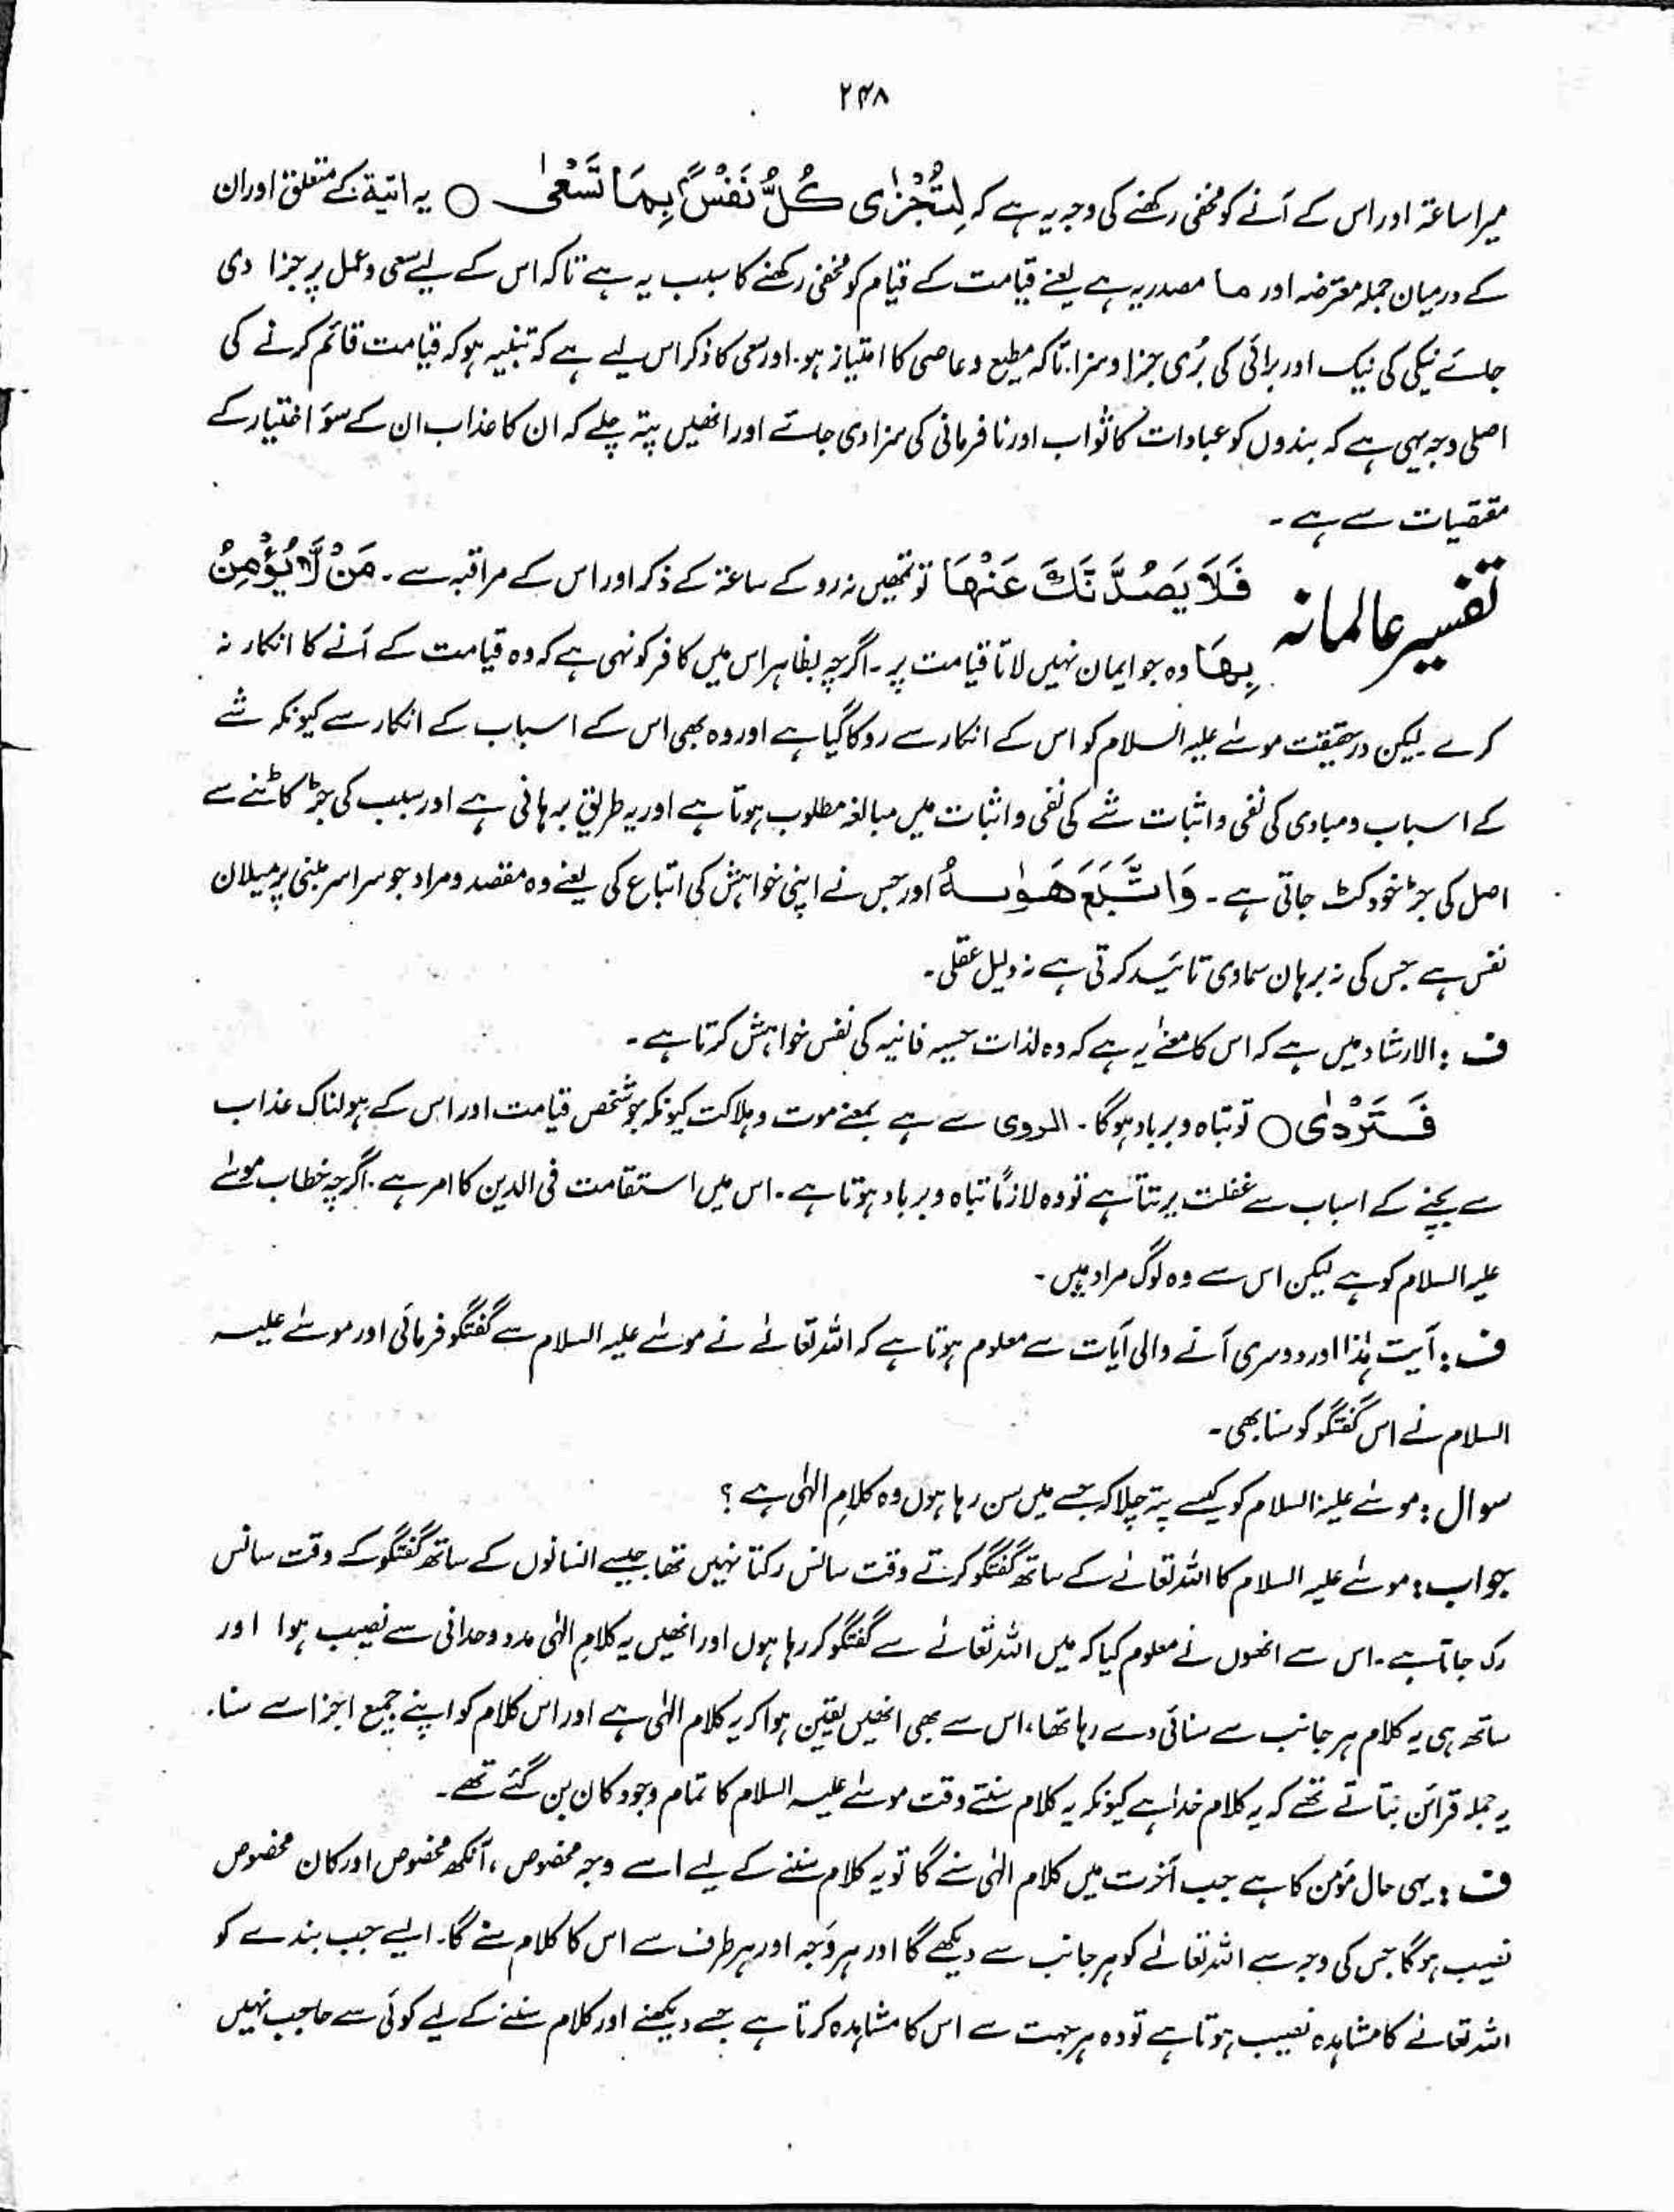 ۲۴۸
میرا ساعۃ اور اس کے آنے کو مخفی رکھنے کی وجہ یہ ہے کہ لِتُجْزٰی کُلُّ نَفْسٍۭ بِمَا تَسْعٰی ○ یہ اتیۃ کے متعلق اور ان
کے درمیان جملہ معترضہ اور ما مصدریہ ہے یعنے قیامت کے قیام کو مخفی رکھنے کا سبب یہ ہے تاکہ اس کے لیے سعی و عمل پر جزا دی
جائے نیکی کی نیک اور برائی کی بُری جزا و سزا۔ تاکہ مطیع و عاصی کا امتیاز ہو۔ اور سعی کا ذکر اس لیے ہے کہ تنبیہ ہو کہ قیامت قائم کرنے کی
اصلی وجہ یہی ہے کہ بندوں کو عبادات کا ثواب اور نافرمانی کی سزا دی جائے اور انھیں پتہ چلے کہ ان کا عذاب ان کے سوٓء اختیار کے
مقتضیات سے ہے۔
تفسیر عالمانہ فَلَا یَصُدَّنَّكَ عَنْهَا تو تمھیں نہ روکے ساعۃ کے ذکر اور اس کے مراقبہ سے۔ مَنْ لَّا یُؤْمِنُ
بِهَا وہ جو ایمان نہیں لاتا قیامت پر۔ اگرچہ بظاہر اس میں کافر کو نہی ہے کہ وہ قیامت کے آنے کا انکار نہ
کرے لیکن درحقیقت موسٰے علیہ السلام کو اس کے انکار سے روکا گیا ہے اور وہ بھی اس کے اسباب کے انکار سے کیونکہ شے
کے اسباب و مبادی کی نفی و اثبات شے کی نفی و اثبات میں مبالغہ مطلوب ہوتا ہے اور یہ طریق برہانی ہے اور سبب کی جڑ کاٹنے سے
اصل کی جڑ خود کٹ جاتی ہے۔ وَاتَّبَعَ هَوٰىهُ اور جس نے اپنی خواہش کی اتباع کی یعنے وہ مقصد و مراد جو سراسر مبنی پر میلان
نفس ہے جس کی نہ برہان سماوی تائید کرتی ہے نہ دلیل عقلی۔
ف : الارشاد میں ہے کہ اس کا معنےٰ یہ ہے کہ وہ لذات حسیہ فانیہ کی نفس خواہش کرتا ہے۔
فَتَرْدٰی ○ تو تباہ و برباد ہوگا۔ الردی سے ہے بمعنے موت و ہلاکت کیونکہ جو شخص قیامت اور اس کے ہولناک عذاب
سے بچنے کے اسباب سے غفلت برتتا ہے تو وہ لازمًا تباہ و برباد ہوتا ہے۔ اس میں استقامت فی الدین کا امر ہے۔ اگرچہ خطاب موسٰے
علیہ السلام کو ہے لیکن اس سے وہ لوگ مراد ہیں۔
ف : آیت ہٰذا اور دوسری آنے والی آیات سے معلوم ہوتا ہے کہ اللہ تعالٰے نے موسٰے علیہ السلام سے گفتگو فرمائی اور موسٰے علیہ
السلام نے اس گفتگو کو سنا بھی۔
سوال : موسٰے علیہ السلام کو کیسے پتہ چلا کہ جسے میں سن رہا ہوں وہ کلامِ الٰہی ہے ؟
جواب : موسٰے علیہ السلام کا اللہ تعالٰے کے ساتھ گفتگو کرتے وقت سانس رکتا نہیں تھا جیسے انسانوں کے ساتھ گفتگو کے وقت سانس
رک جاتا ہے۔ اس سے انھوں نے معلوم کیا کہ میں اللہ تعالٰے سے گفتگو کر رہا ہوں اور انھیں یہ کلامِ الٰہی مدد وحدانی سے نصیب ہوا اور
ساتھ ہی یہ کلام ہر جانب سے سنائی دے رہا تھا، اس سے بھی انھیں یقین ہوا کہ یہ کلام الٰہی ہے اور اس کلام کو اپنے جمیع اجزا سے سنا۔
یہ جملہ قرائن بتاتے تھے کہ یہ کلام خدا ہے کیونکہ یہ کلام سنتے وقت موسٰے علیہ السلام کا تمام وجود کان بن گئے تھے۔
ف : یہی حال مؤمن کا ہے جب آخرت میں کلام الٰہی سنے گا تو یہ کلام سننے کے لیے اسے وجہ مخصوص، آنکھ مخصوص اور کان مخصوص
نصیب ہوگا جس کی وجہ سے اللہ تعالٰے کو ہر جانب سے دیکھے گا اور ہر وَجہ اور ہر طرف سے اس کا کلام سنے گا۔ ایسے جب بندے کو
اللہ تعالٰے کا مشاہدہ نصیب ہوتا ہے تو وہ ہر جہت سے اس کا مشاہدہ کرتا ہے جسے دیکھنے اور کلام سننے کے لیے کوئی سے حاجب نہیں